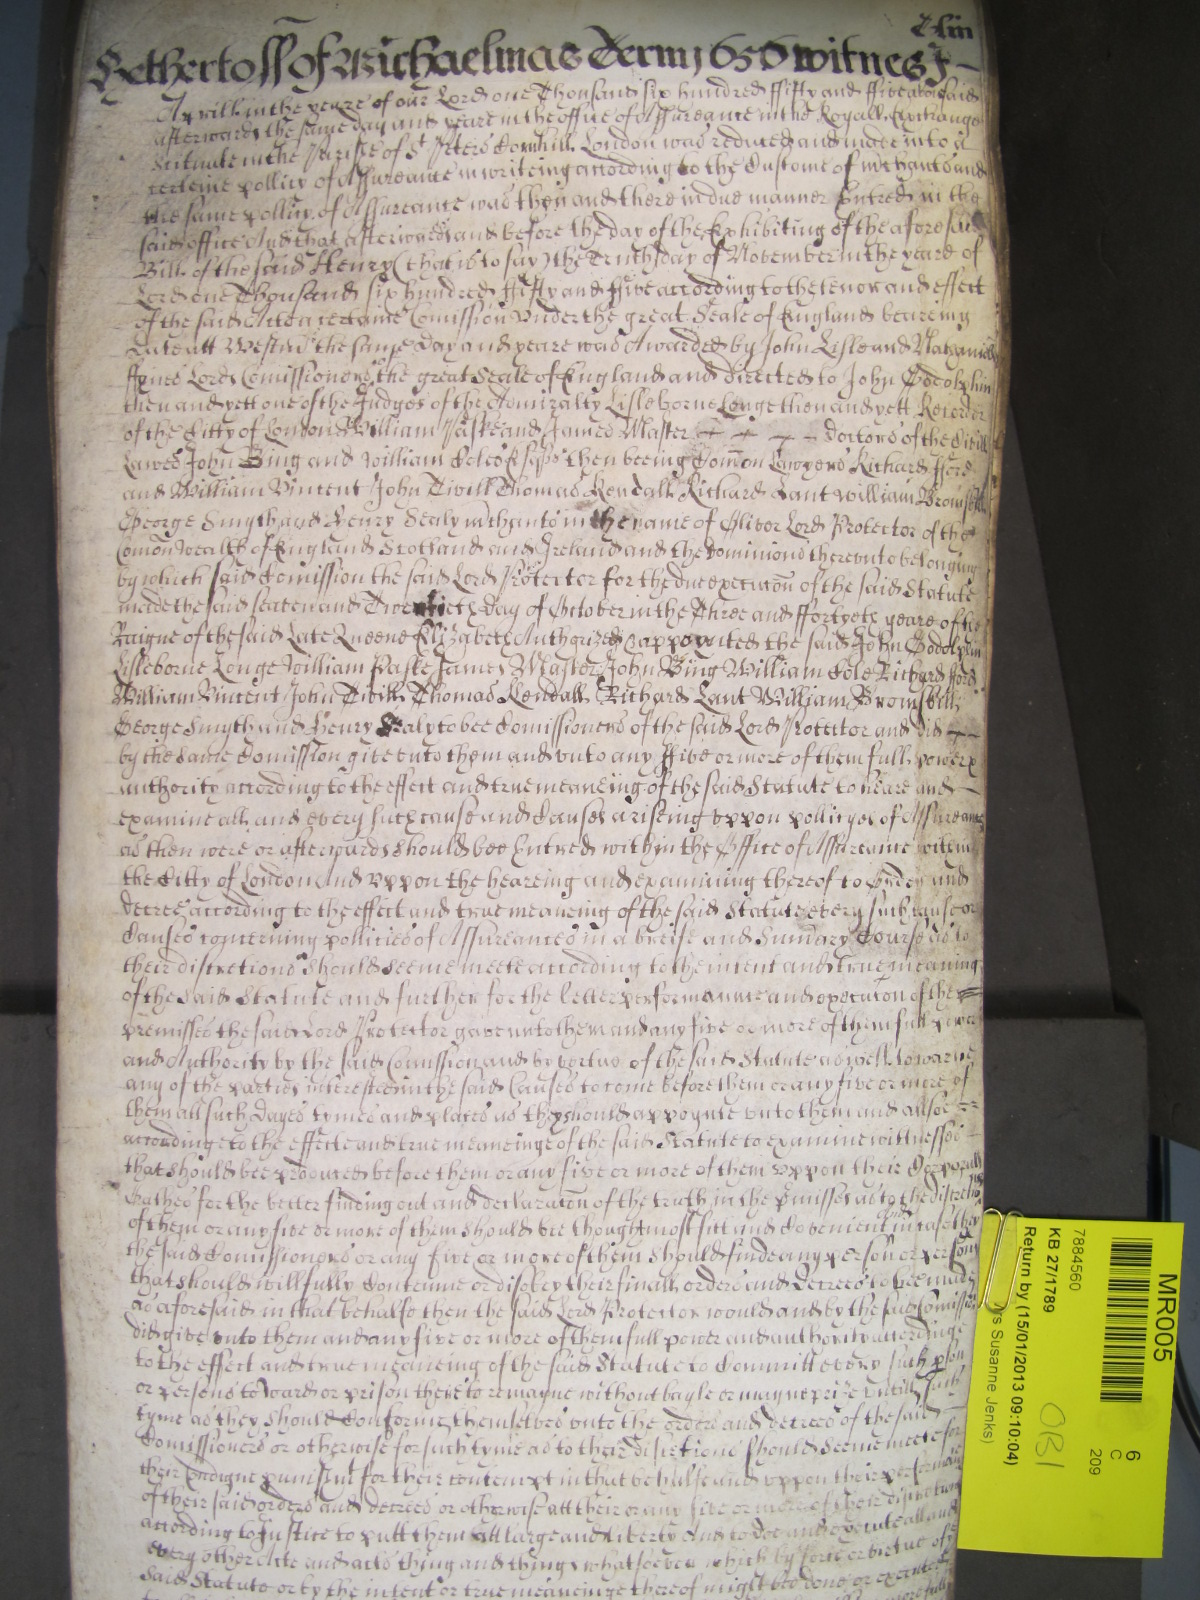 Elin
The rest of Michaelmas Term 1656 Witnes J
Aprill in the yeare of our Lord one Thousand six hundred ffifty and ffive aforesaid
afterwards the same day and yeare in the office of Assureance in the Royall Exchange
scituate in the Parishe of St Peters Cornhill London was reduced and made into a
certeine pollicy of Assureance in writeing according to the Custome of mchants and
the same pollicy of Assureance was then and there in due manner Entred in the
said office And that afterwards and before the day of the Exhibiting of the aforesaid
Bill of the said Henry (that is to say) the Tenth day of November in the yeare of
Lord one Thousand six hundred ffifty and ffive according to the tenor and effect
of the said Acte a certaine Comission Under the great Seale of England beareing
date att Westmr the same day and yeare was Awarded by John Lisle and Nathaniell
ffynes Lords Comissioners the great Seale of England and directed to John Godolphin
then and yett one of the Judges of the Admiralty Lislebone Longe then and yett Recorder
of the Citty of London William Paske and James Master doctors of the Civill
Lawes John Bing and William Cole then beeing Comon Lawyers Richard fford
and William Vincent John Tivill Thomas Kendall Richard Lant William Bromskill
George Smyth and Henry Sealy mchants in the name of Oliver Lord Protector of the
Comonwealth of England Scotland and Ireland and the dominions thereunto belonging
by which said Comission the said Lord Protector for the due execution of the said Statute
made the said seaven and Twentieth day of October in the Three and ffortyeth yeare of the
Raigne of the said Late Queene Elizabeth Authorized & appointed the said John Godolphin
Lisleborne Longe William Paske James Master John Bing William Cole Richard fford
William Vincent John Tivill Thomas Kendall Richard Lant William Bromskill
George Smyth and Henry Sealy to bee Comissioners of the said Lord Protector and did
by the same Comission give unto them and unto any ffive or more of them full power &
authority according to the effect and true meaneing of the said Statute to heare and
examine all and every such cause and Causes ariseing uppon pollicyes of Assureance
as then were or afterwards should bee Entred within the Office of Assureance within
the Citty of London And uppon the heareing and examining thereof to order and
decree according to the effect and true meaneing of the said Statute every such cause or
Causes concerning pollicies of Assureances in a breife and Sumary Course as to
their discretions should seeme meete according to the intent and true meaning
of the said Statute and further for the better performance and execution of the
premisses the said Lord Protector gave unto them and any five or more of them full power
and Authority by the said Comission and by vertue of the said Statute as well to warne
any of the parties interessed in the said Causes to come before them or any five or more of
them att such dayes tymes and places as they should appoynte unto them and allsoe
according to the effecte and true meaneinge of the said Statute to examine witnesses
that should bee produced before them or any five or more of them uppon their Corporall
Oathes for the better findeing out and declaration of the truth in the pmisses as to the discrecions
of them or any five or more of them should bee thought most fitt and Convenient And in case they
the said Comissioners or any five or more of them should finde any person or persons
that should willfully Contemne or disobey their finall orders and decrees to bee made
as aforesaid in that behalfe then the said Lord Protector would and by the said Comission
did give unto them and any five or more of them full power and authority accordinge
to the effect and true meaneing of the said Statute to Committ every such pson
or persons to ward or prison there to remayne without bayle or maynprize untill such
tyme as they should Conforme themselves unto the orders and decrees of the said
Comissioners or otherwise for such tyme as to their discretions should seeme meete for
their Condigne punishmt for their contempt in that behalfe and uppon their performance
of their said orders and decrees or otherwise att their or any five or more of their discretions
according to Justice to putt them att large and liberty And to doe and execute all and
every other Acte and acts thing and things whatsoever which by force or vertue of the
said Statute or by the intent or true meaneinge thereof might bee done or executed
MR005
6
C
209
7884560
KB 27/1789
Return by (15/01/2013 09:10:04)
s Susanne Jenks)
OB1